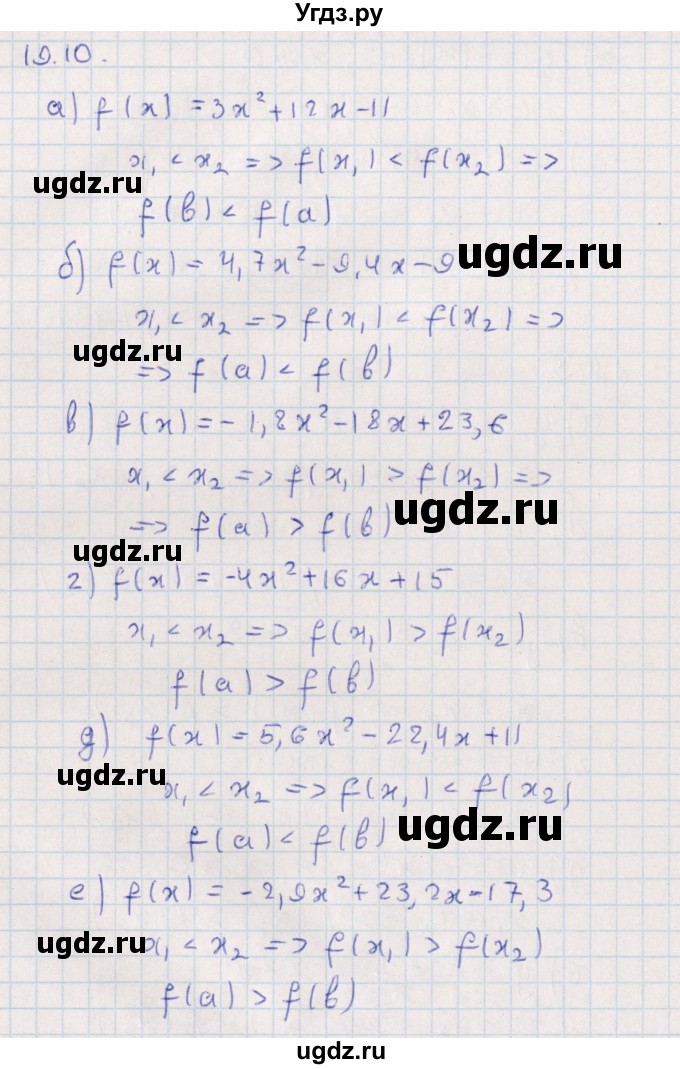 Угдз.ру
19.10.
а) f(x) = 3x² + 12x - 11
x₁ < x₂ => f(x₁) < f(x₂) =>
ugdz.ru
f(b) < f(a)
б) f(x) = 4,7x² - 9,4x - 9
ugdz.ru
x₁ < x₂ => f(x₁) < f(x₂) =>
ugdz.ru
=> f(a) < f(b)
в) f(x) = - 1,8x² - 18x + 23,6
x₁ < x₂ => f(x₁) > f(x₂) =>
ugdz.ru
=> f(a) > f(b)
ugdz.ru
г) f(x) = -4x² + 16x + 15
x₁ < x₂ => f(x₁) > f(x₂)
ugdz.ru
f(a) > f(b)
д) f(x) = 5,6x² - 22,4x + 11
ugdz.ru
x₁ < x₂ => f(x₁) < f(x₂)
f(a) < f(b)
ugdz.ru
е) f(x) = -2,9x² + 23,2x - 17,3
x₁ < x₂ => f(x₁) > f(x₂)
ugdz.ru
f(a) > f(b)
ugdz.ru
ugdz.ru